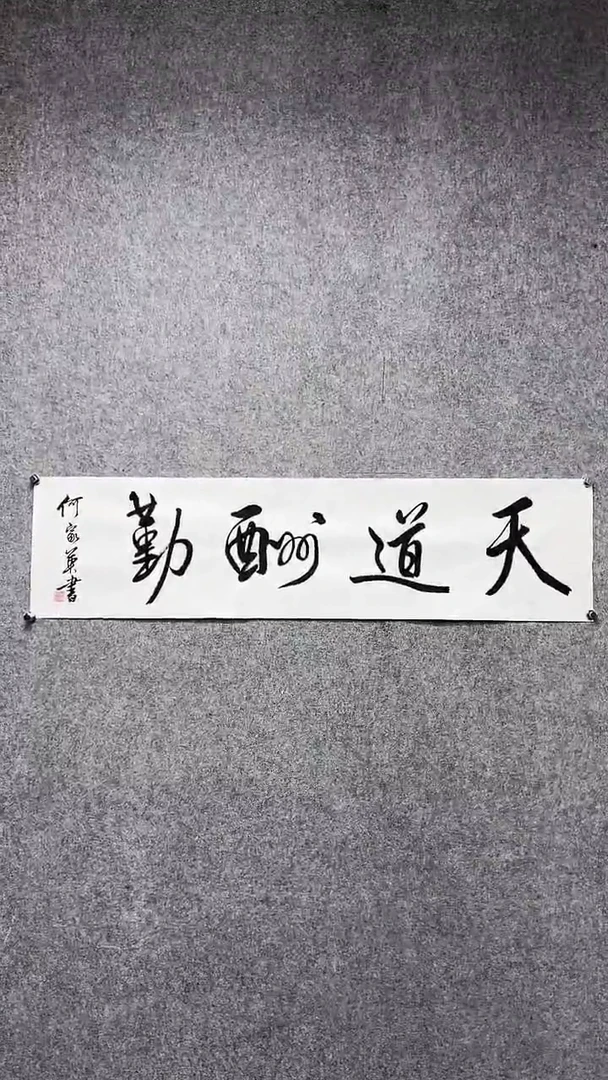 天道酬勤
何家英書